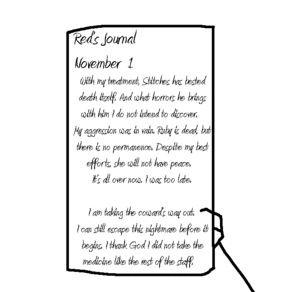 Red's Journal
November 1
With my treatment, Stitches has bested
death itself. And what horrors he brings
with him I do not intend to discover.
My aggression was in vain. Ruby is dead, but
there is no permanence. Despite my best
efforts, she will not have peace.
It's all over now. I was too late.
I am taking the coward's way out.
I can still escape this nightmare before it
begins. I thank God I did not take the
medicine like the rest of the staff.